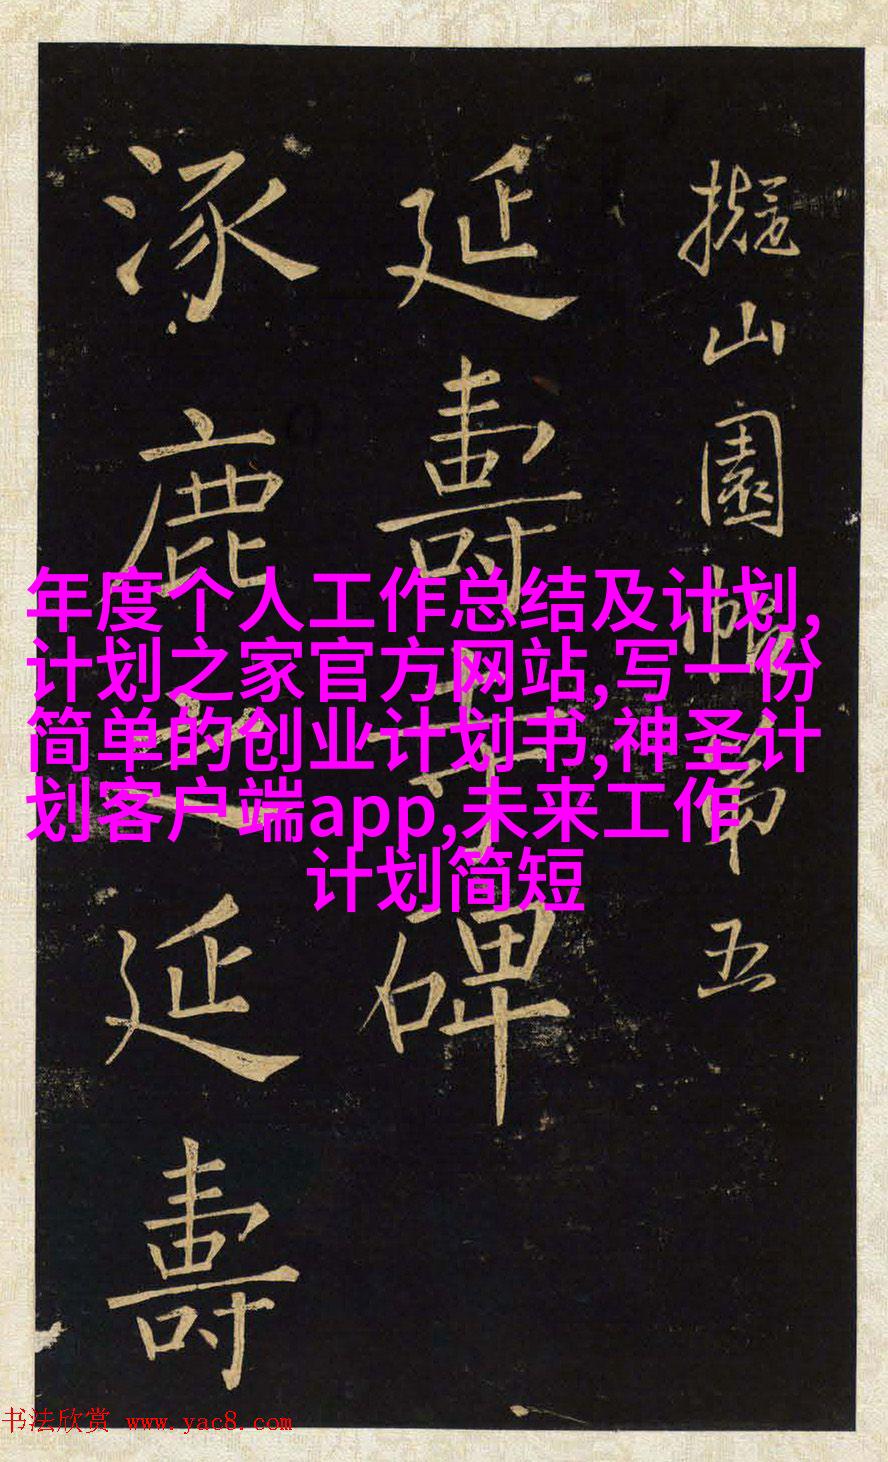 擬山園帖第五
延壽寺碑
涿鹿之延壽
年度个人工作总结及计划,
计划之家官方网站,写一份
简单的创业计划书,神圣计
划客户端app,未来工作
计划简短
书法欣赏 www.yac8.com